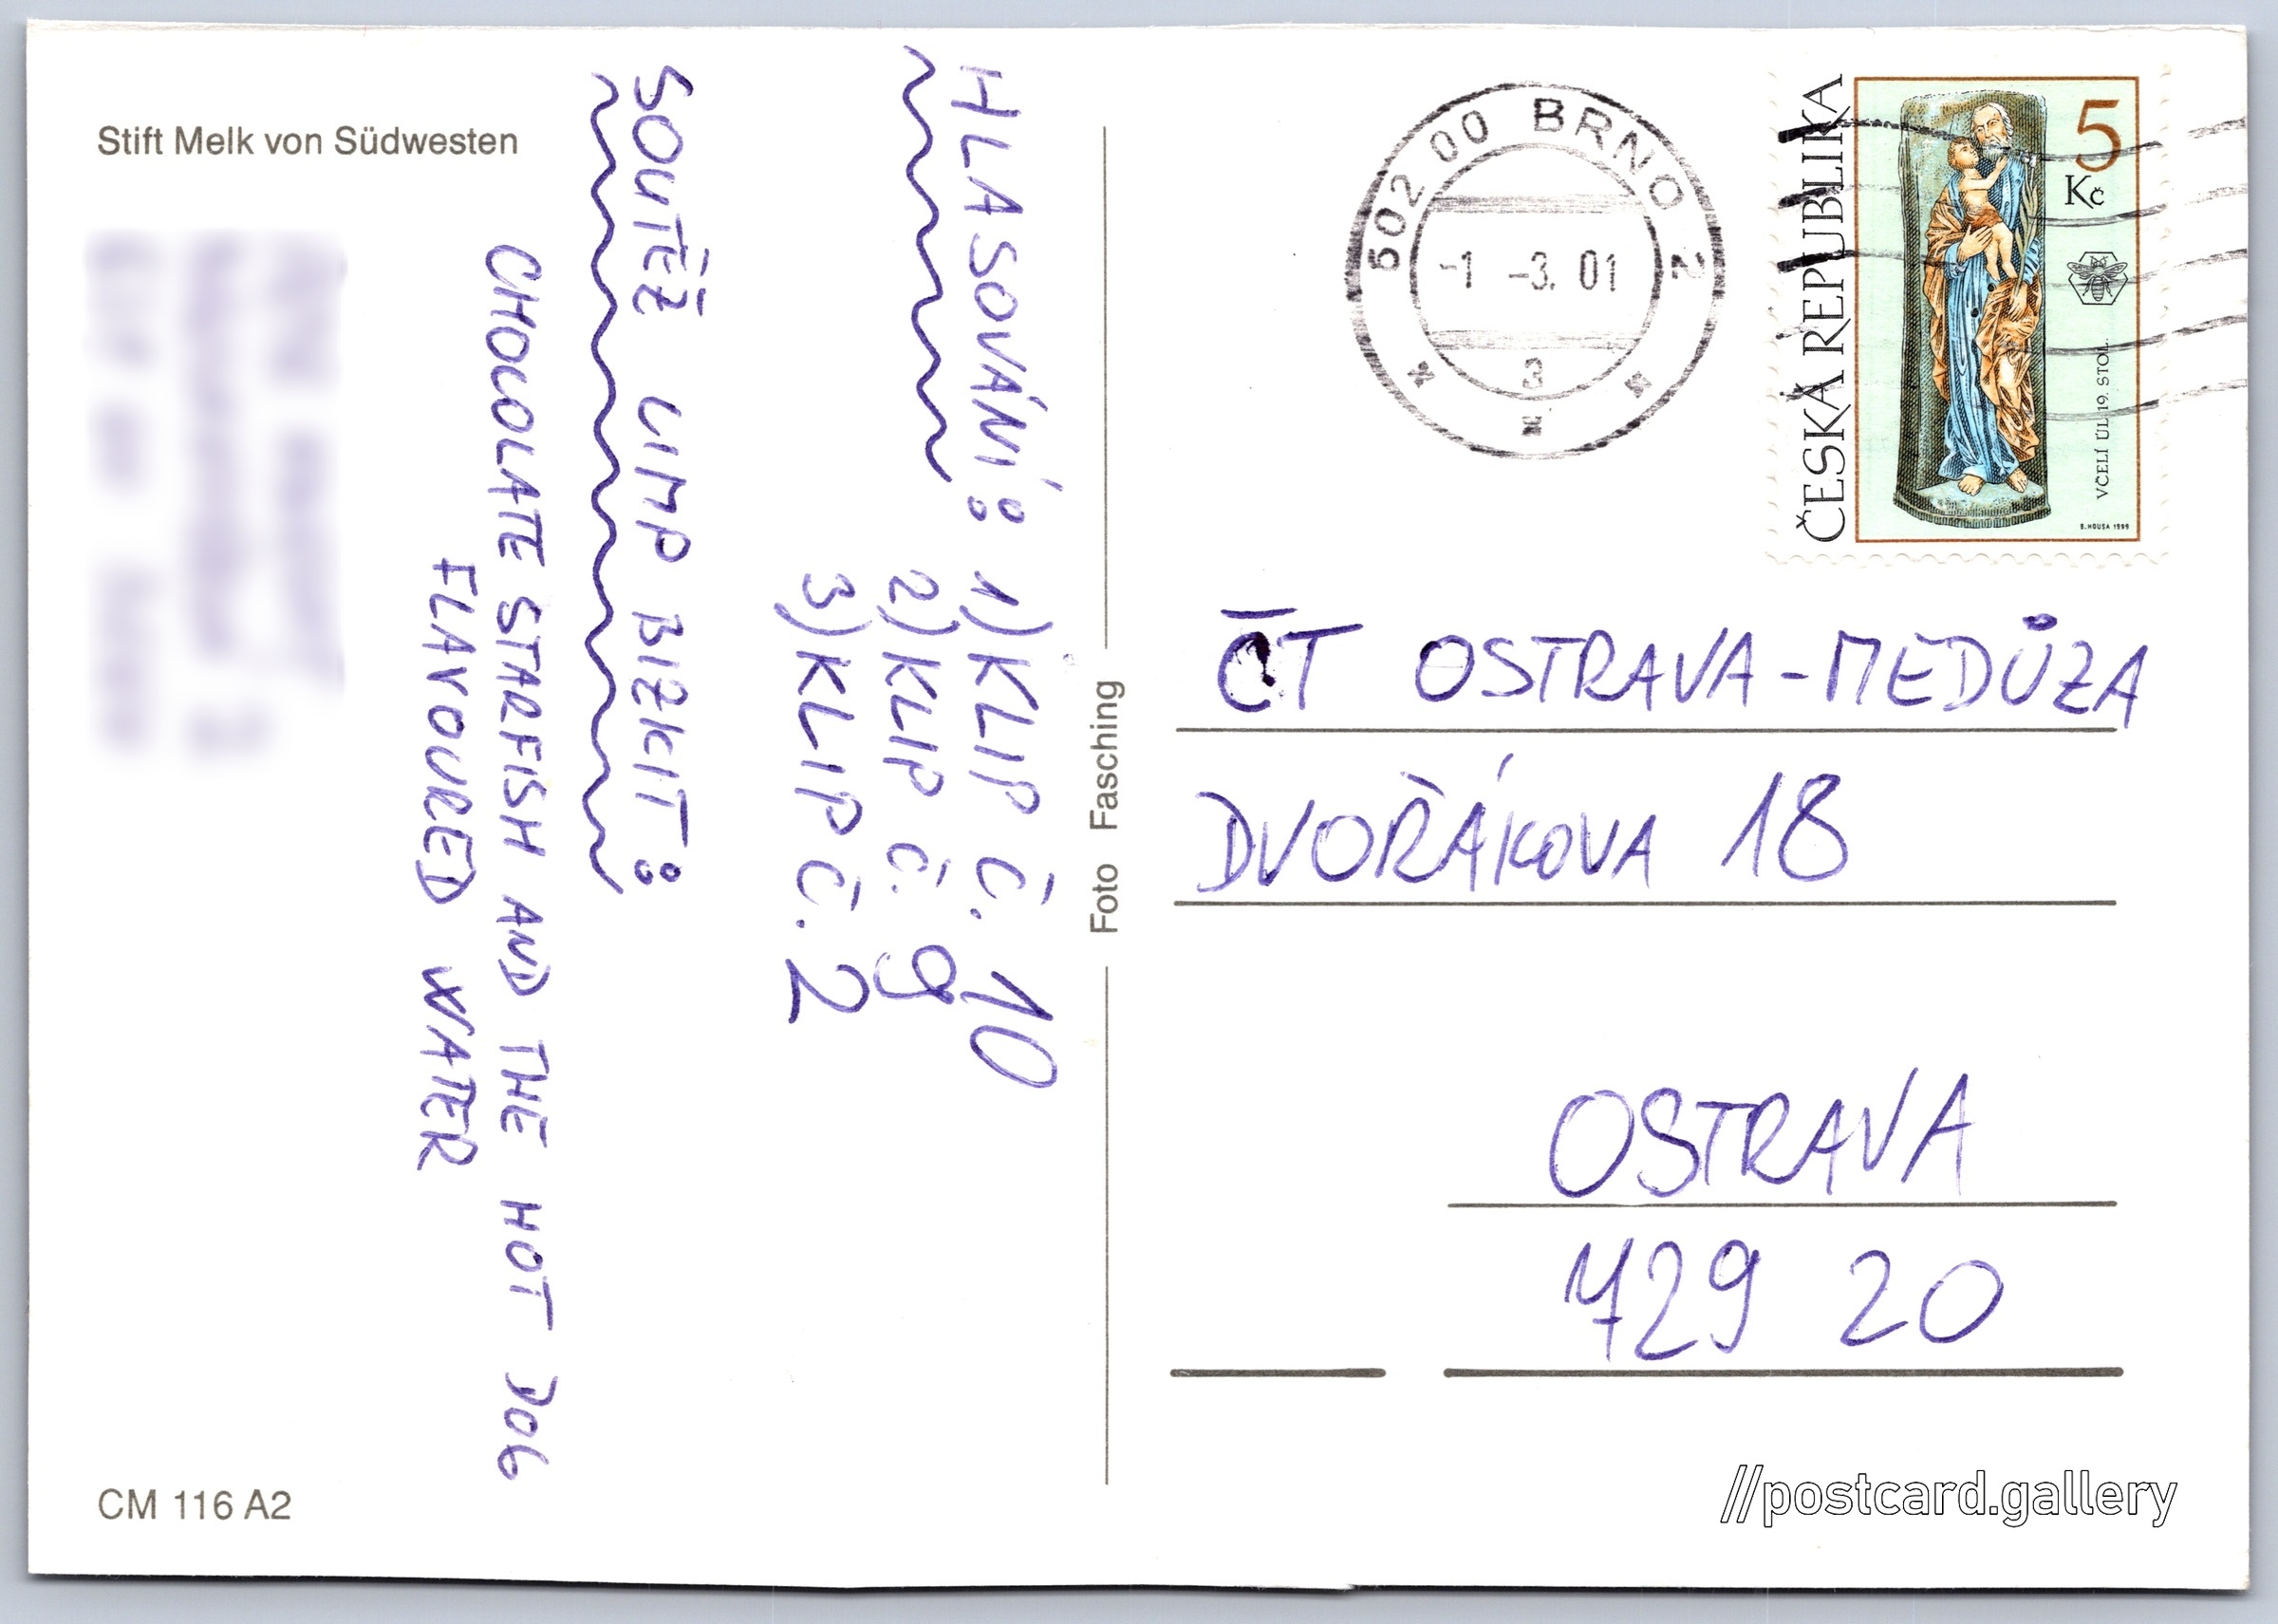 Stift Melk von Südwesten
HLASOVÁNÍ: 1) KLIP Č. 10
2) KLIP Č. 9
3) KLIP Č. 2
SOUTĚŽ LIMP BIZKIT:
CHOCOLATE STARFISH AND THE HOT DOG
FLAVOURED WATER
CM 116 A2
Foto Fasching
502 00 BRNO 2
-1 -3. 01
a
ČESKÁ REPUBLIKA
5
Kč
VČELÍ ÚL 19. STOL.
B. HOUSA 1999
ČT OSTRAVA-MEDŮZA
DVOŘÁKOVA 18
OSTRAVA
729 20
//postcard.gallery